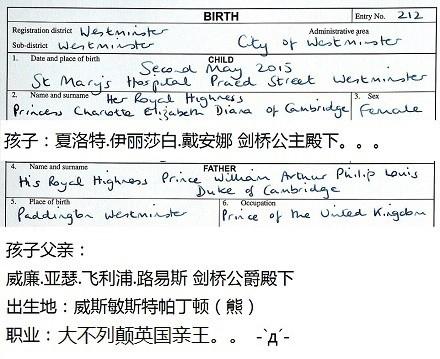 BIRTH
Entry No. 212
Registration district Westminster
Administrative area
Sub-district Westminster
City of Westminster
1. Date and place of birth
CHILD
Second May 2015
St Mary's Hospital Praed Street Westminster
2. Name and surname
3. Sex
Her Royal Highness
Princess Charlotte Elizabeth Diana of Cambridge
Female
孩子：夏洛特.伊丽莎白.戴安娜 剑桥公主殿下。。。
4. Name and surname
FATHER
His Royal Highness Prince William Arthur Philip Louis
Duke of Cambridge
5. Place of birth
6. Occupation
Paddington Westminster
Prince of the United Kingdom
孩子父亲：
威廉.亚瑟.飞利浦.路易斯 剑桥公爵殿下
出生地：威斯敏斯特帕丁顿（熊）
职业：大不列颠英国亲王。。 -`д´-